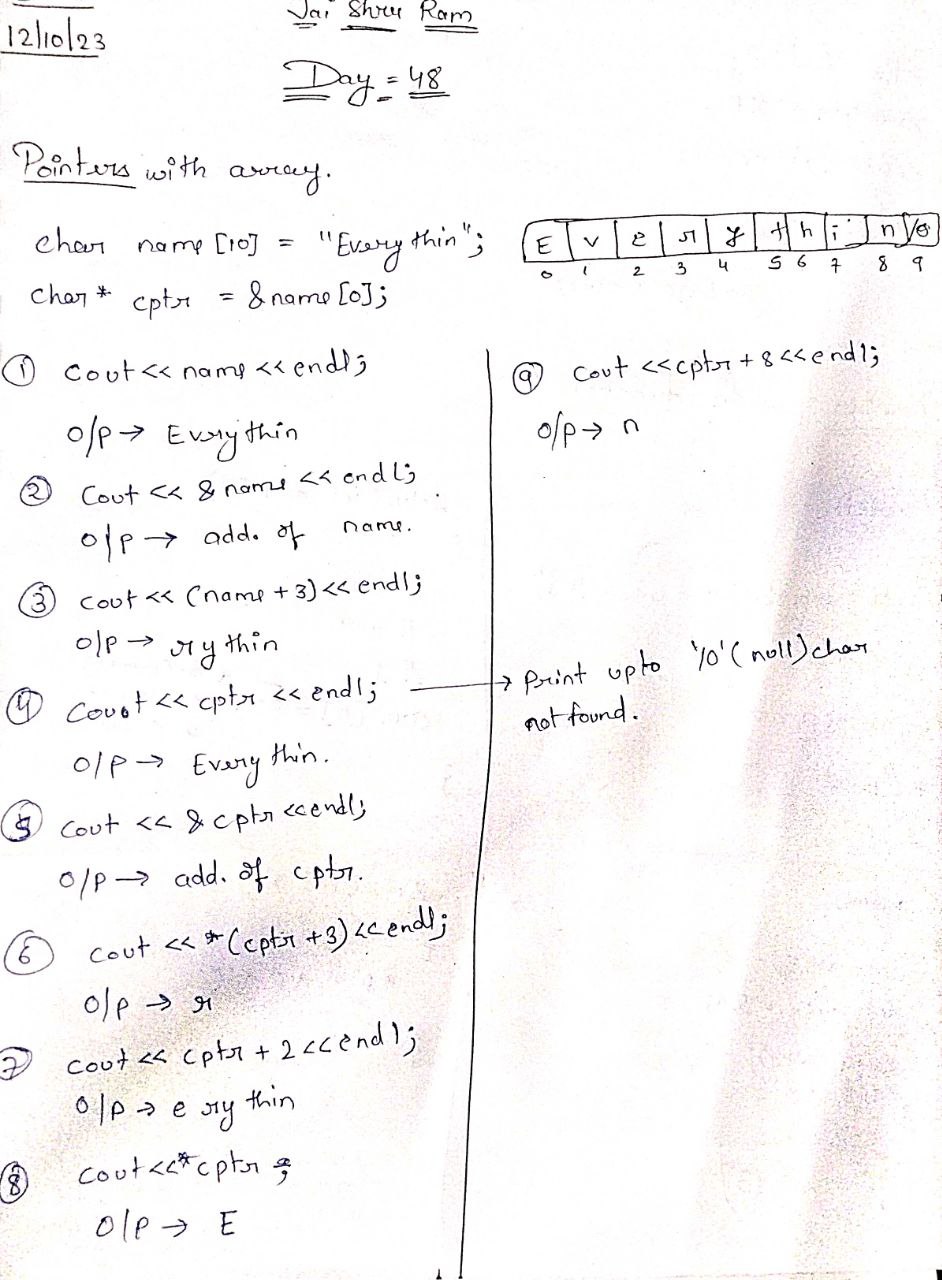 12/10/23
Jai Shree Ram
Day = 48
Pointers with array.
char name [10] = "Every thin";
E v e r y t h i n \0
0 1 2 3 4 5 6 7 8 9
char * cptr = & name [0];
① cout << name << endl;
o/p → Everythin
② Cout << & name << endl;
o/p → add. of name.
③ cout << (name + 3) << endl;
o/p → rythin
④ Cout << cptr << endl; → Print upto '\0' (null) char
not found.
o/p → Everythin.
⑤ cout << & cptr << endl;
o/p → add. of cptr.
⑥ cout << * (cptr + 3) << endl;
o/p → r
⑦ cout << cptr + 2 << endl;
o/p → e ry thin
⑧ cout << * cptr ;
o/p → E
⑨ cout << cptr + 8 << endl;
o/p → n